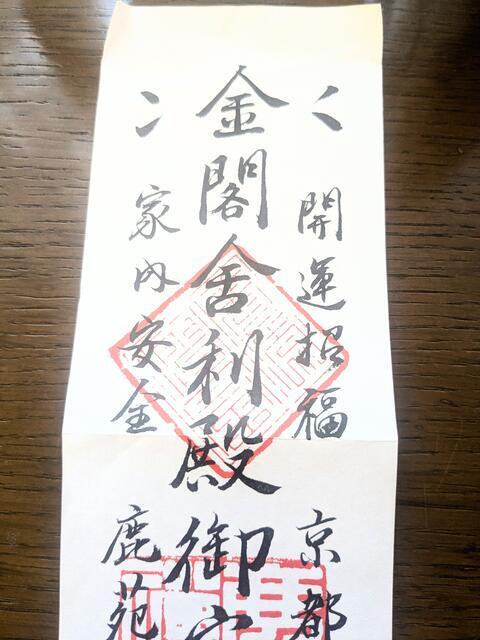 開運招福
京都
金閣舎利殿御
家内安全
鹿苑